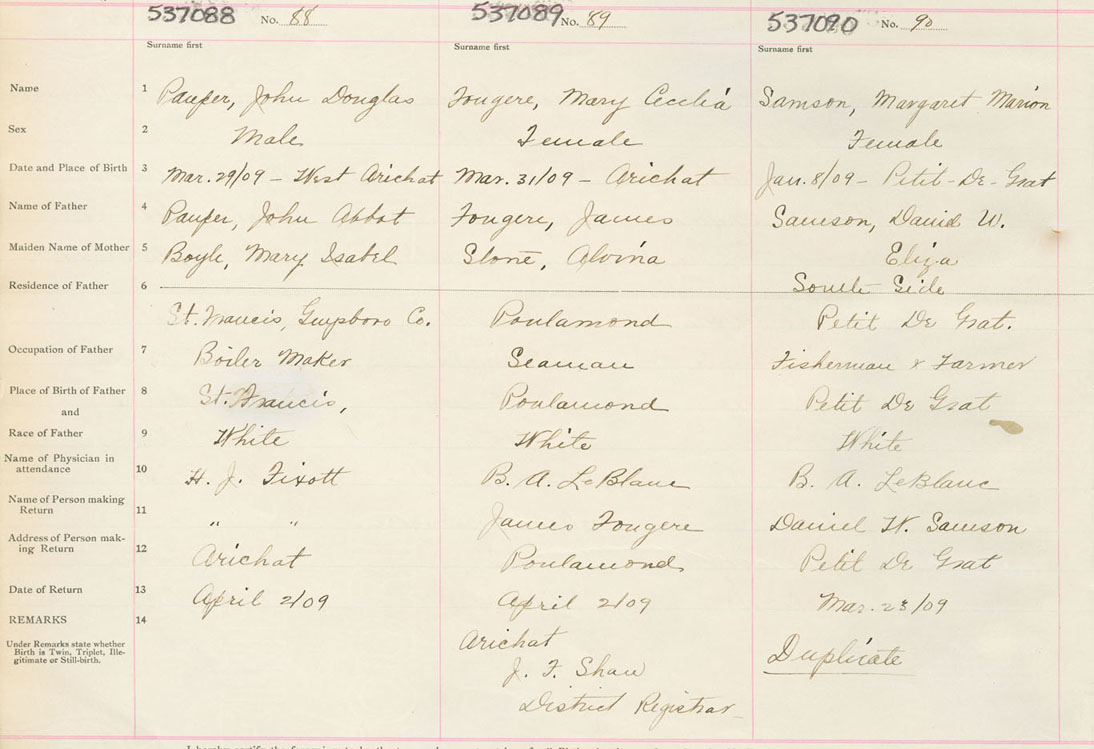 537088 No. 88 537089 No. 89 537090 No. 90
Surname first Surname first Surname first
Name 1 Pauper, John Douglas Fougere, Mary Cecilia Samson, Margaret Marion
Sex 2 Male Female Female
Date and Place of Birth 3 Mar. 29/09 - West Arichat Mar. 31/09 - Arichat Jan. 8/09 - Petit-De-Grat
Name of Father 4 Pauper, John Abbot Fougere, James Samson, Daniel W.
Maiden Name of Mother 5 Boyle, Mary Isabel Stone, Alvina Eliza
Residence of Father 6 South Side
St. Francis, Guysboro Co. Poulamond Petit De Grat.
Occupation of Father 7 Boiler Maker Seaman Fisherman & Farmer
Place of Birth of Father 8 St. Francis, Poulamond Petit De Grat
and
Race of Father 9 White White White
Name of Physician in
attendance 10 H. J. Fixott B. A. LeBlanc B. A. LeBlanc
Name of Person making
Return 11 " " James Fougere Daniel W. Samson
Address of Person mak-
ing Return 12 Arichat Poulamond Petit De Grat
Date of Return 13 April 2/09 April 2/09 Mar. 23/09
REMARKS 14
Under Remarks state whether
Birth is Twin, Triplet, Ille-
gitimate or Still-birth.
Arichat
J. F. Shaw
District Registrar
Duplicate